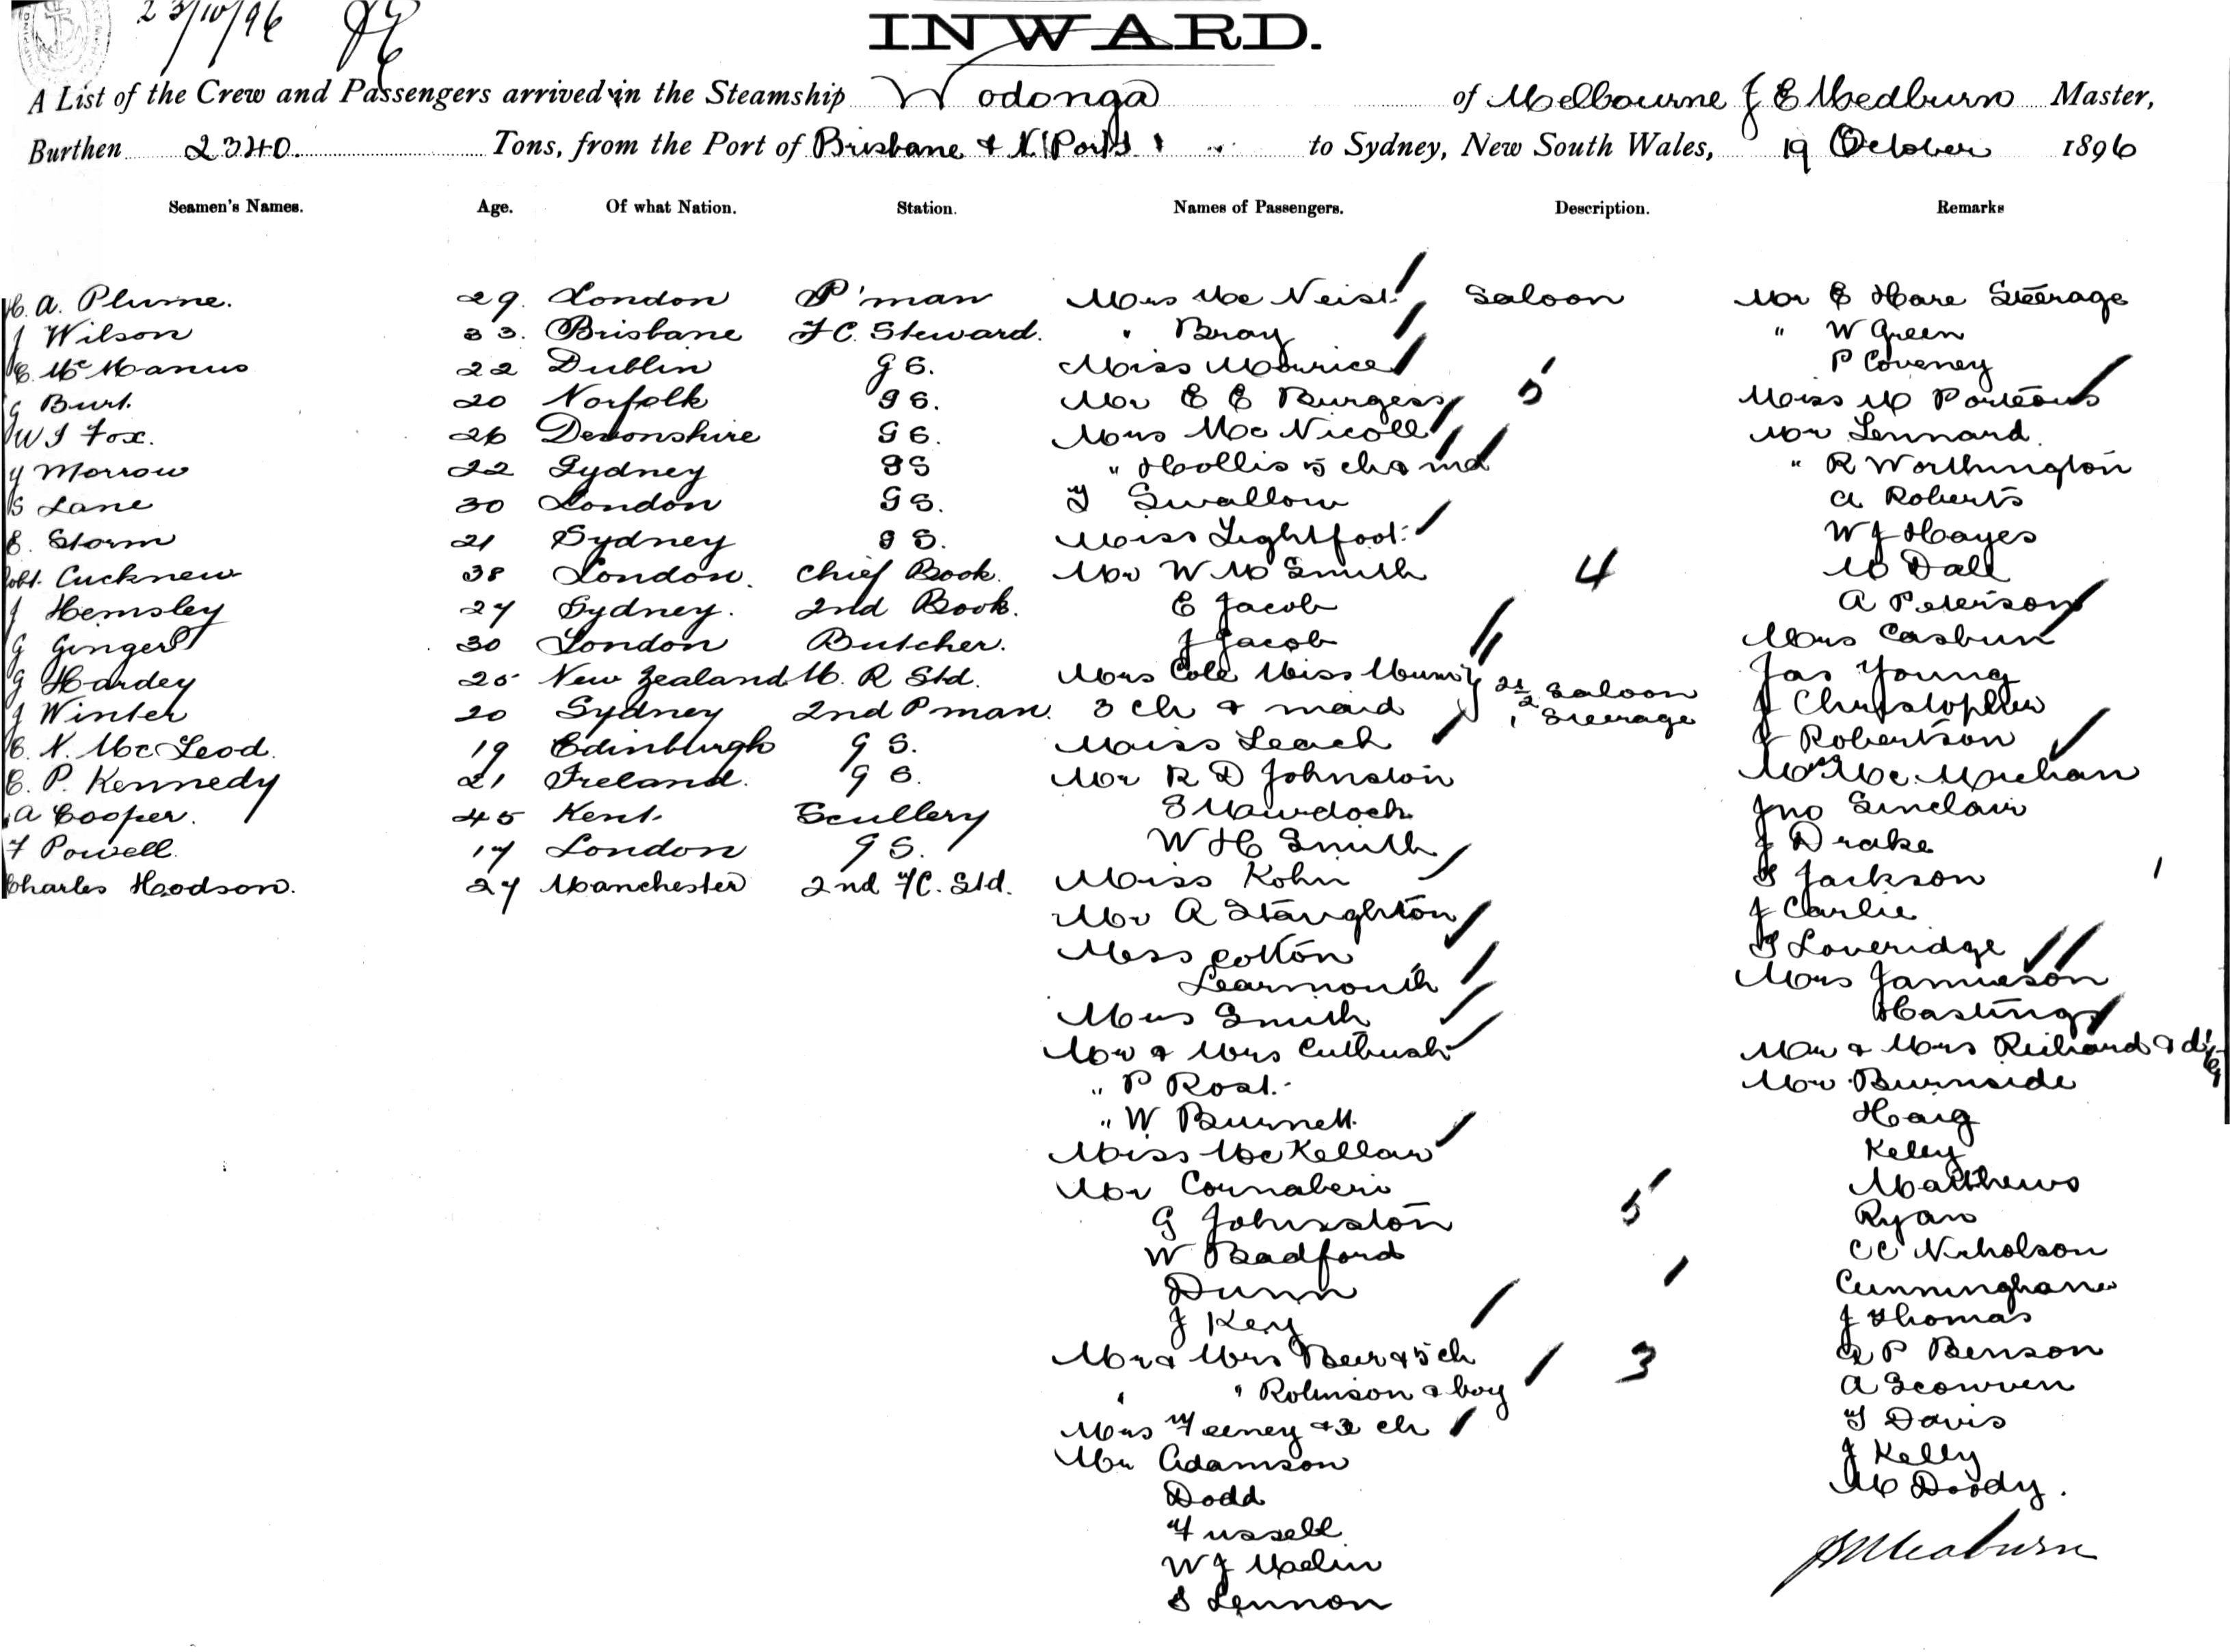 23/10/96
INWARD.
A List of the Crew and Passengers arrived in the Steamship Wodonga of Melbourne J E Medburn Master,
Burthen 2340. Tons, from the Port of Brisbane & N Ports to Sydney, New South Wales, 19 October 1896
Seamen's Names. Age. Of what Nation. Station. Names of Passengers. Description. Remarks
H. A. Plume. 29. London P'man Mrs Mc Neist Saloon Mr E Hare Steerage
J Wilson 33. Brisbane F C. Steward. " Bray " W Green
C. McManus 22 Dublin G S. Miss Maurice P Coveney
G Burt. 20 Norfolk G S. Mr E E Burgess 5 Miss M Porteous
W J Fox. 26 Devonshire G S. Mrs Mc Nicoll Mr Lennard
Y Morrow 22 Sydney G S " Hollis 5 ch & md " R Worthington
S Lane 30 London G S. T Swallow A Roberts
E. Storm 21 Sydney G S. Miss Lightfoot W J Hayes
Robt. Cucknew 38 London. Chief Book. Mr W M Smith 4 M Dall
J Hemsley 27 Sydney. 2nd Book. E Jacob A Peterson
G Ginger 30 London Butcher. J Jacob Mrs Casbun
G Hardey 25 New Zealand M. R Std. Mrs Cole Miss 2½ Saloon Jas Young
J Winter 20 Sydney 2nd P man. 3 ch & maid 1 Steerage J Christopher
C. N. McLeod. 19 Edinburgh G S. Miss Leach J Robertson
C. P. Kennedy 21 Ireland. G S. Mr R D Johnston Mrs Mc. Meehan
A Cooper. 45 Kent. Scullery S Murdoch Jno Sinclair
F Powell. 17 London G S. W H Smith J Drake
Charles Hodson. 27 Manchester 2nd F/C. Std. Miss Kohn S Jackson
Mr A Staughton J Carlie
Miss Cotton S Loveridge
Learmouth Mrs Jamieson
Mrs Smith Hastings
Mr & Mrs Cutbush Mr & Mrs Richard &
" P Rost. Mr Burnside
" W Burnett. Haig
Miss McKellar Kelly
Mr Cornaberi Matthews
G Johnston 5 Ryan
W Badford C C Nicholson
Dunn Cunningham
J Key J Thomas
Mr & Mrs Beer & 5 ch 3 A P Benson
" " Robinson & boy A Scowen
Mrs Feeney & 3 ch T Davis
Mr Adamson J Kelly
Dodd M Doody.
Fussell
W J Malin
S Lennon